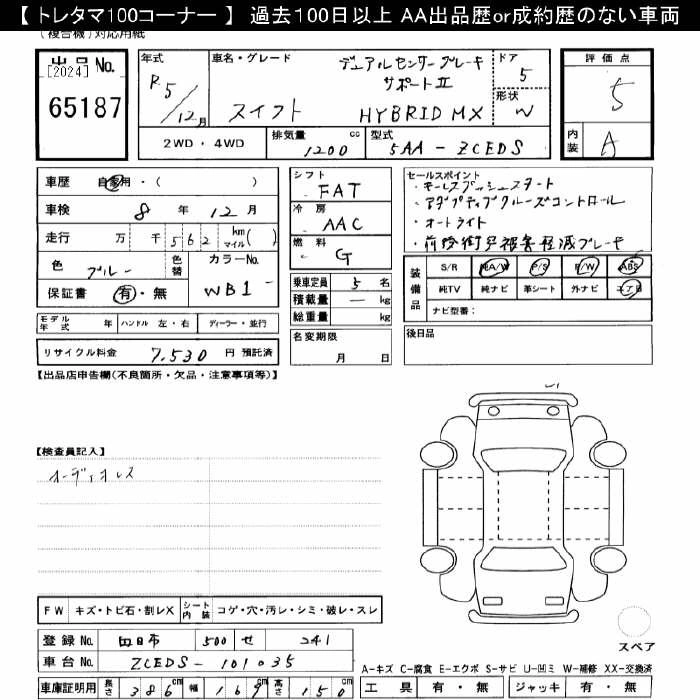 【 トレタマ100コーナー 】 過去100日以上 AA出品歴or成約歴のない車両
(複合機)対応用紙
出品 No.
[2024]
65187
年式
R5/12月
車名・グレード
デュアルセンサーブレーキ
サポートⅡ
スイフト HYBRID MX
ドア
5
形状
W
評価点
5
内装
A
2WD・4WD
排気量 1200 cc
型式 5AA-ZCEDS
車歴 自家用・( )
車検 8 年 12月
走行 万 千 562 km マイル ( )
色 ブルー
色替
カラーNo. WB1-
保証書 有・無
シフト FAT
冷房 AAC
燃料 G
乗車定員 5 名
積載量 ― kg
総重量 kg
名変期限
月 日
セールスポイント
・キーレスプッシュスタート
・アダプティブクルーズコントロール
・オートライト
・前後衝突被害軽減ブレーキ
装備品
S/R 純A/W P/S P/W ABS
純TV 純ナビ 革シート 外ナビ エアB
ナビ型番:
後日品
モデル年式 年 ハンドル 左・右 ディーラー・並行
リサイクル料金 7,530 円 預託済
【出品店申告欄(不良箇所・欠品・注意事項等)】
【検査員記入】
オーディオレス
FW キズ・トビ石・割レX シート内装 コゲ・穴・汚レ・シミ・破レ・スレ
登録 No. 四日市 500 せ 241
車台 No. ZCEDS-101035
車庫証明用 長さ 386 cm 幅 169 cm 高さ 150 cm
スペア
A-キズ C-腐食 E-エクボ S-サビ U-凹ミ W-補修 XX-交換済
工具 有・無 ジャッキ 有・無